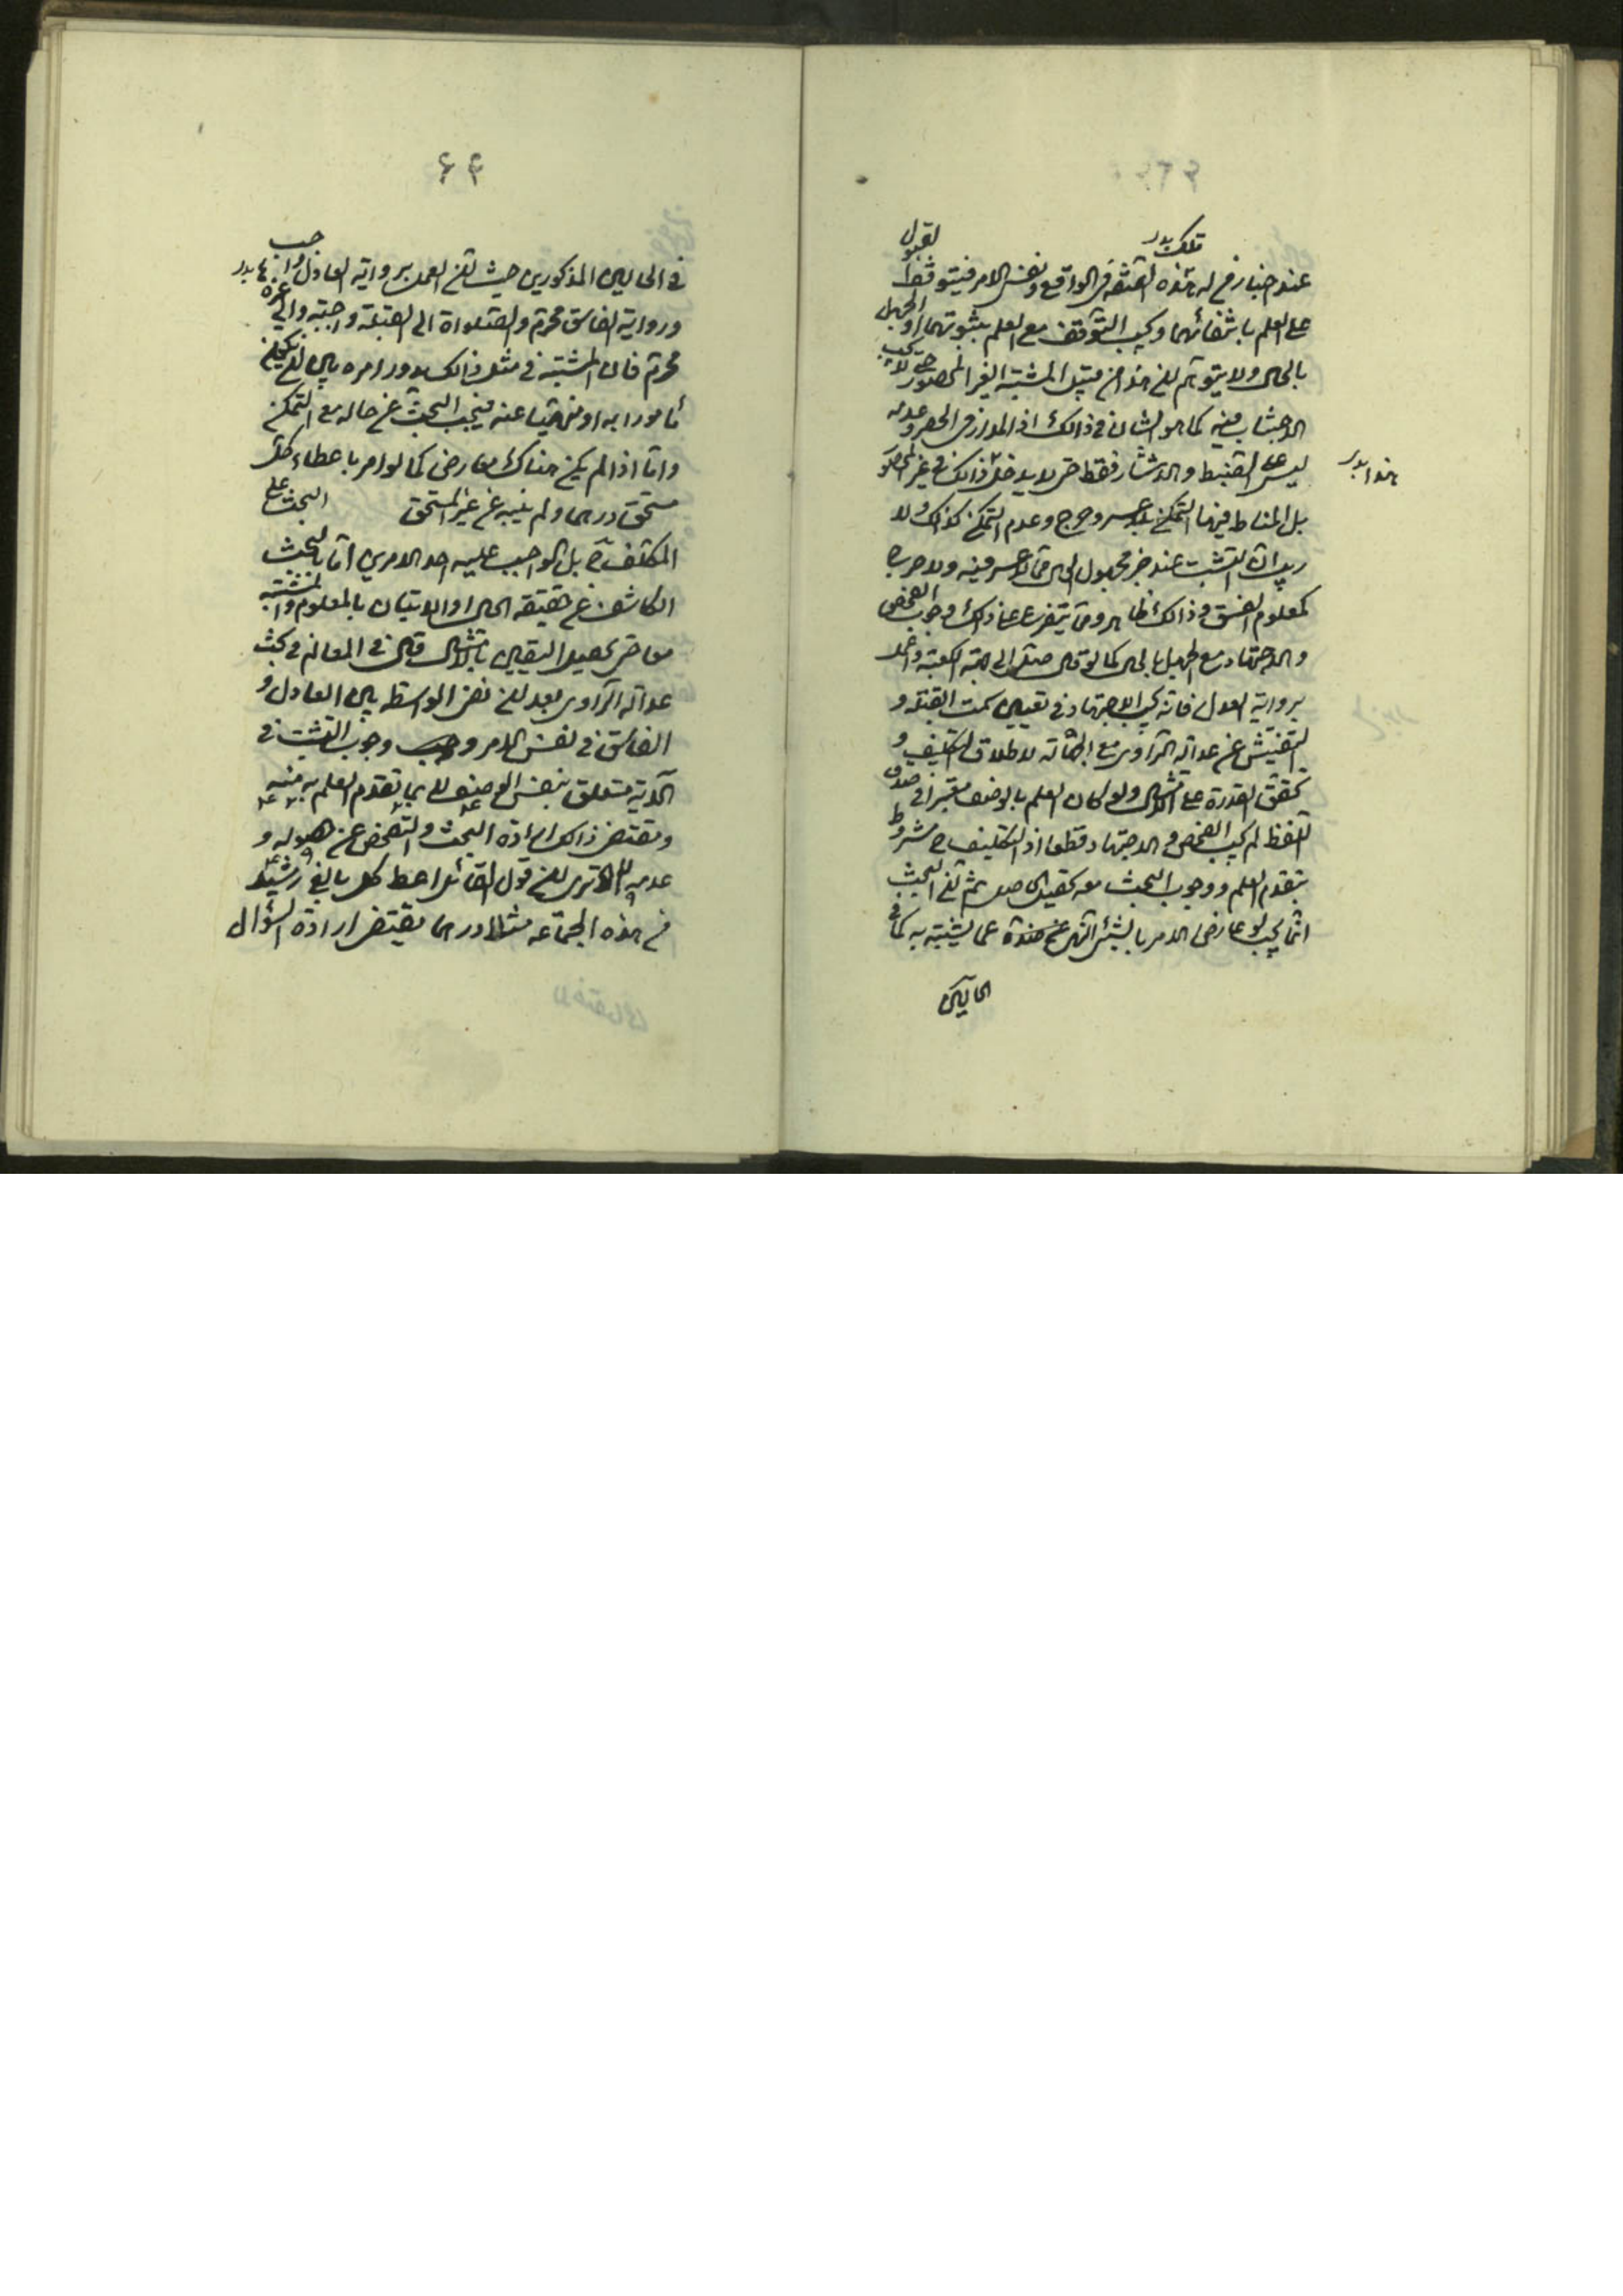 عند اخبار من له هذه الصفة فى الواقع ونفس الامر فيتوقف القبول
على العلم بانتفائهما ويجب التوقف مع العلم بثبوتهما او الجهل
بالحال ولا يتوهم ان هذا من قبيل المشتبه الغير المحصور حتى لا يجب
الاجتناب فيه كما هو الشان فى ذالك اذ المدار فى الحصر وعدمه
ليس على الضبط والانتشار فقط حتى لا يدخل ذالك فى غير المحصور
بل المناط فيهما التمكن بلا عسر وحرج وعدم التمكن كذالك ولا
ريب ان التثبت عند خبر مجهول الحال مما لا عسر فيه ولا حرج
كمعلوم الفسق وذالك ظاهر ومما يتفرع على ذالك وجوب الفحص
والاجتهاد مع الجهل بالحال كما لو قال صل الى جهة الكعبة واعمل
برواية العدول فانه يجب الاجتهاد فى تعيين سمت القبلة و
التفتيش عن عدالة الراوى مع الجهالة لاطلاق التكليف و
تحقق القدرة على الامتثال ولو كان العلم بالوصف معتبرا فى صدق
اللفظ لم يجب الفحص والاجتهاد قطعا اذ التكليف ح مشروط
بتقدم العلم ووجوب البحث معه تحصيل الحاصل ثم ان البحث
انما يجب لو عارض الامر بالشئ النهى عن ضده عما يشتبه به كما فى
الحالين
تلك بدر
هذا بدر
۶۴
فى الحالين المذكورين حيث ان العمل برواية العادل واجب
ورواية الفاسق محرم والصلواة الى القبلة واجبة والى غيرها
محرم فان المشتبه فى مثل ذالك يدور امره بين ان يكون
مأمورا به او منهيا عنه فيجب البحث عن حاله مع التمكن
واما اذا لم يكن هناك معارض كما لو امر باعطاء كل
مستحق درهما ولم ينهه عن غير المستحق البحث على
المكلف ح بل الواجب عليه احد الامرين اما البحث
الكاشف عن حقيقة الحال او الاتيان بالمعلوم والمشتبه
معا حتى يحصل اليقين بالامتثال قال فى المعالم فى بحث
عدالة الراوى بعد ان نفى الواسطة بين العادل و
الفاسق فى نفس الامر وجوب التثبت فى
الاية متعلق بنفس الوصف لا بما تقدم العلم به منه
ومقتضى ذالك ارادة البحث والتفحص عن حصوله و
عدمه الا ترى ان قول القائل اعط كل بالغ رشيد
من هذه الجماعة مثلا درهما يقتضى ارادة السؤال